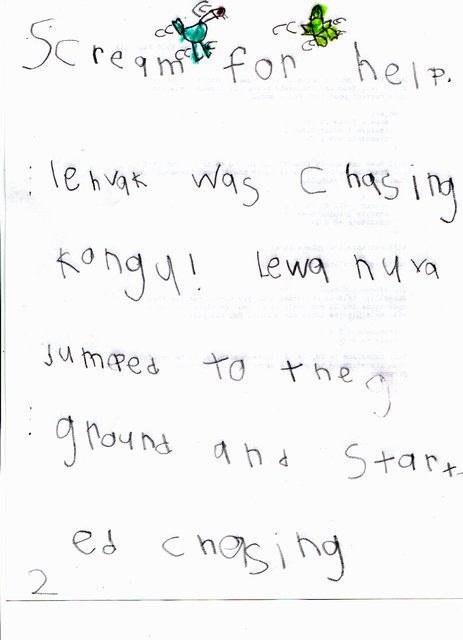 Scream for help.
lehvak was Chasing
Kongu! Lewa nuva
Jumped to the g
ground and Start-
ed chasing
2